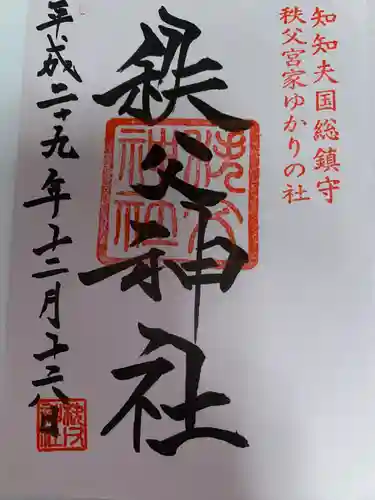 知知夫国総鎮守
秩父宮家ゆかりの社
秩父神社
平成二十九年十二月十六日
秩父神社